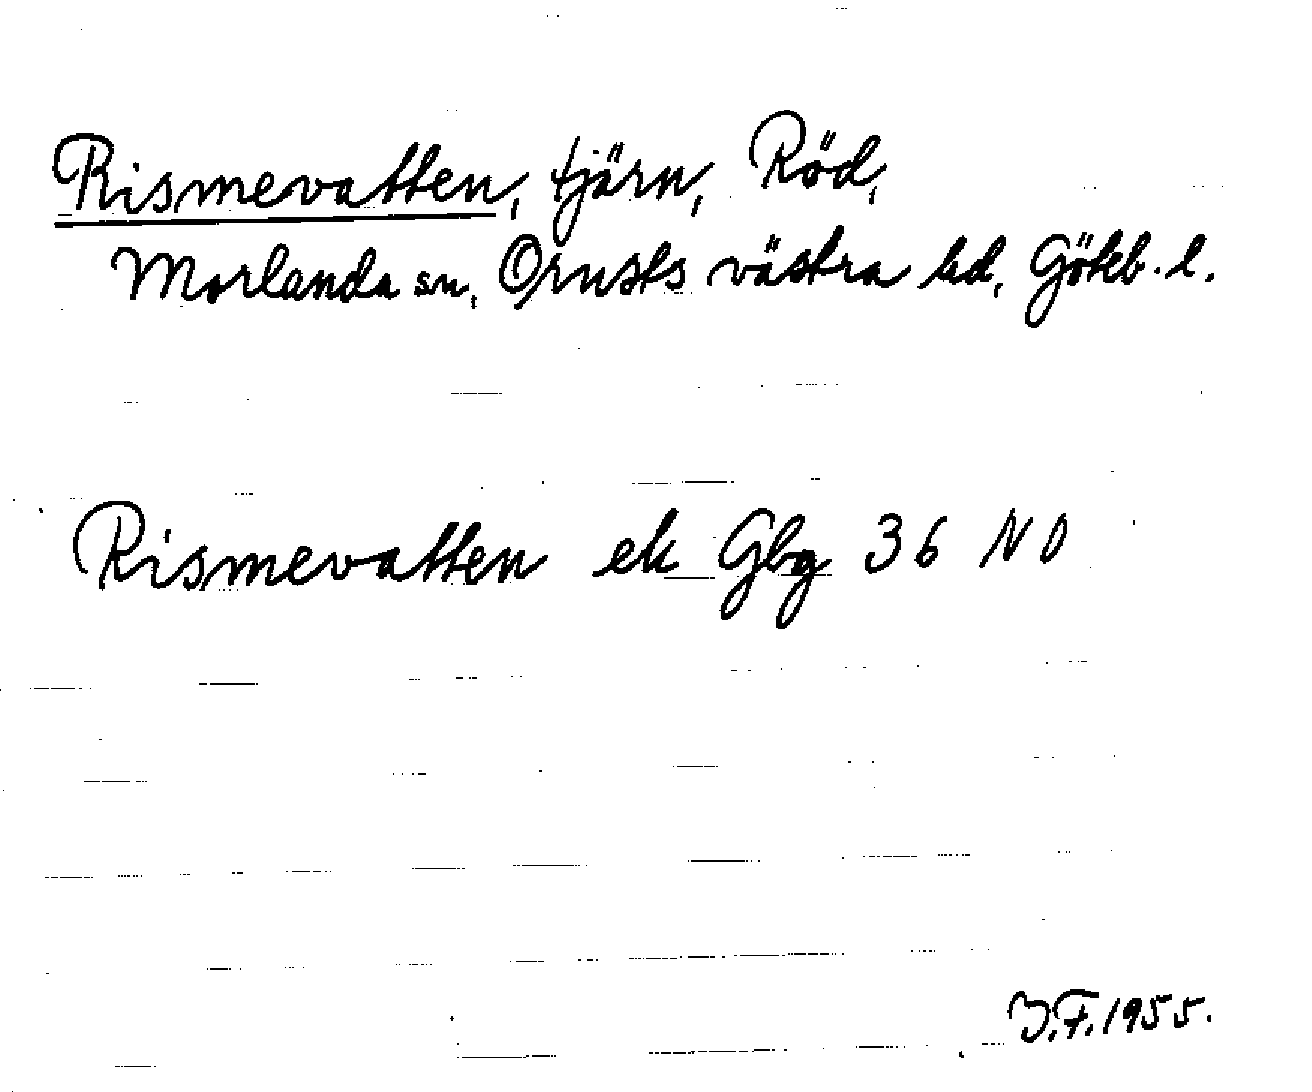 Rismevatten, tjärn, Röd,
Morlanda sn, Orusts västra hd, Göteb. l.
Rismevatten ek Gbg 36 NO
J.F. 1955.